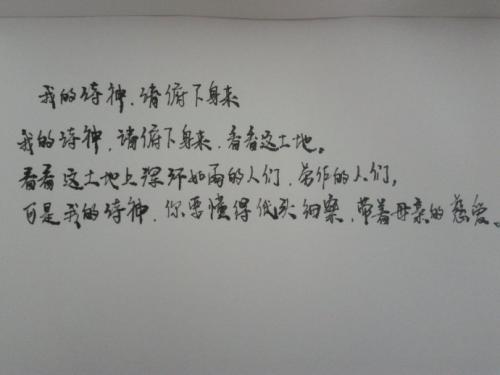 我的诗神，请俯下身来
我的诗神，请俯下身来，看看这土地。
看看这土地上深环如雨的人们，劳作的人们，
可是我的诗神，你要懂得低头细察，带着母亲的慈爱。